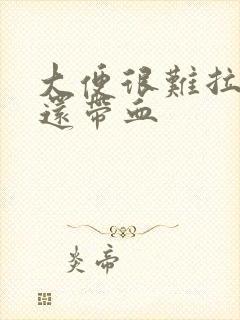 大便很難拉
還帶血
炎帝